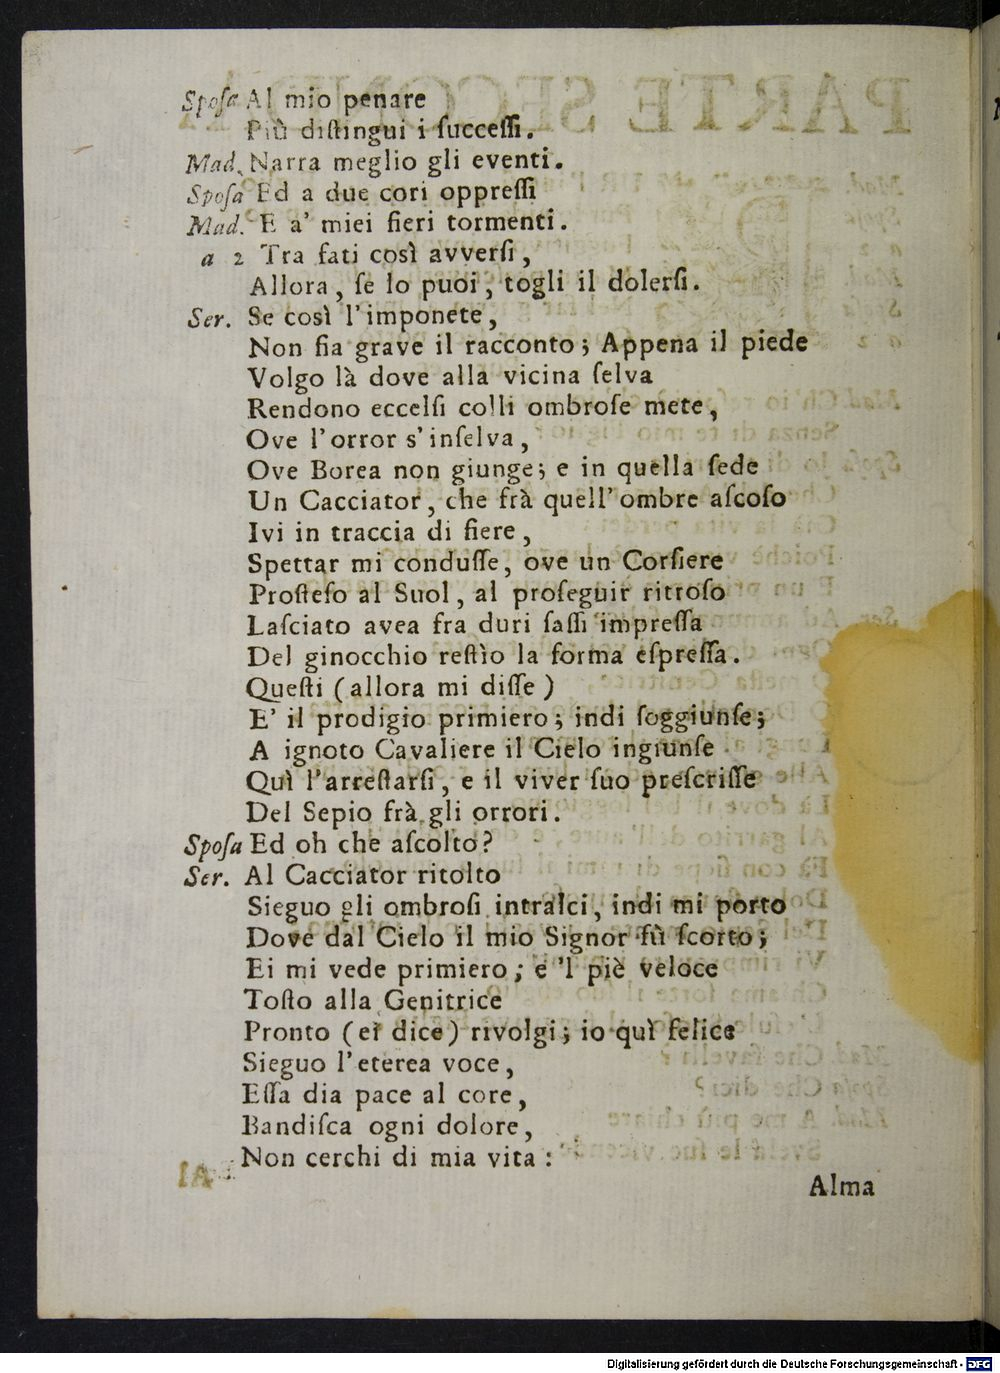 Spoſa Al mio penare
Più diſtingui i ſucceſſi.
Mad. Narra meglio gli eventi.
Spoſa Ed a due cori oppreſſi
Mad. E a' miei fieri tormenti.
a 2 Tra fati così avverſi,
Allora, ſe lo puoi, togli il dolerſi.
Ser. Se così l'imponete,
Non fia grave il racconto; Appena il piede
Volgo là dove alla vicina ſelva
Rendono eccelſi colli ombroſe mete,
Ove l'orror s'inſelva,
Ove Borea non giunge; e in quella ſede
Un Cacciator, che frà quell'ombre aſcoſo
Ivi in traccia di fiere,
Spettar mi conduſſe, ove un Corſiere
Proſteſo al Suol, al proſeguir ritroſo
Laſciato avea fra duri ſaſſi impreſſa
Del ginocchio reſtìo la forma eſpreſſa.
Queſti (allora mi diſſe)
E' il prodigio primiero; indi ſoggiunſe;
A ignoto Cavaliere il Cielo ingiunſe
Quì l'arreſtarſi, e il viver ſuo preſcriſſe
Del Sepio frà gli orrori.
Spoſa Ed oh che aſcolto?
Ser. Al Cacciator ritolto
Sieguo gli ombroſi intralci, indi mi porto
Dove dal Cielo il mio Signor fù ſcorto;
Ei mi vede primiero; e 'l piè veloce
Toſto alla Genitrice
Pronto (ei dice) rivolgi; io quì felice
Sieguo l'eterea voce,
Eſſa dia pace al core,
Bandiſca ogni dolore,
Non cerchi di mia vita:
Alma
Digitalisierung gefördert durch die Deutsche Forschungsgemeinschaft - DFG